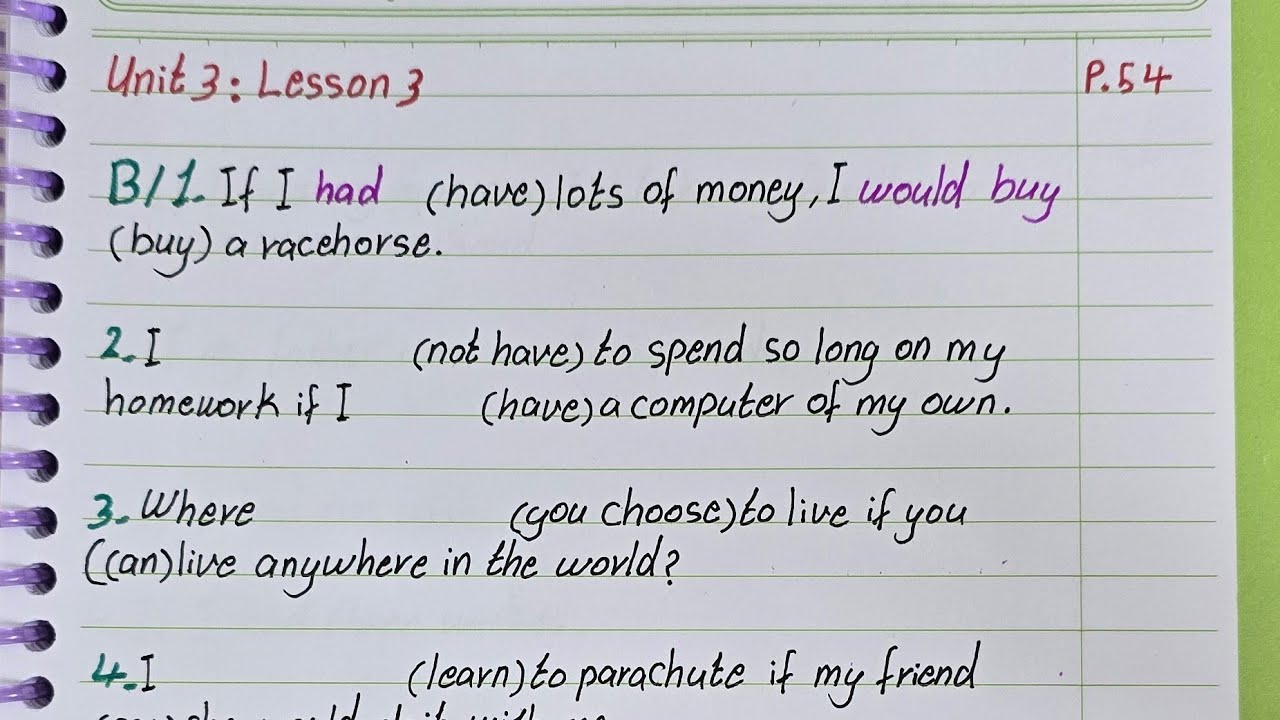 Unit 3: Lesson 3 P.54
B/1. If I had (have) lots of money, I would buy
(buy) a racehorse.
2. I (not have) to spend so long on my
homework if I (have) a computer of my own.
3. Where (you choose) to live if you
(can) live anywhere in the world?
4. I (learn) to parachute if my friend